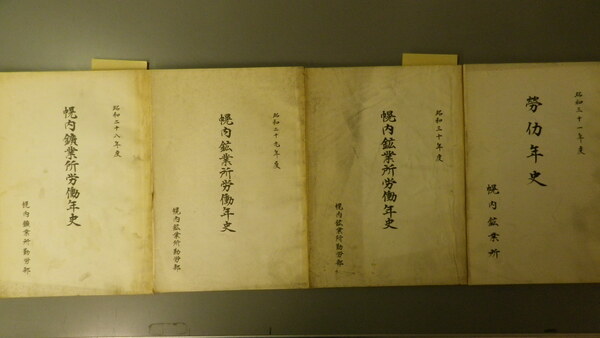 昭和二十八年度
幌内鑛業所労働年史
幌内鑛業所勤労部
昭和二十九年度
幌内鉱業所労働年史
幌内鉱業所勤労部
昭和三十年度
幌内鉱業所労働年史
幌内鉱業所勤労部
昭和三十一年度
勞仂年史
幌内鉱業所